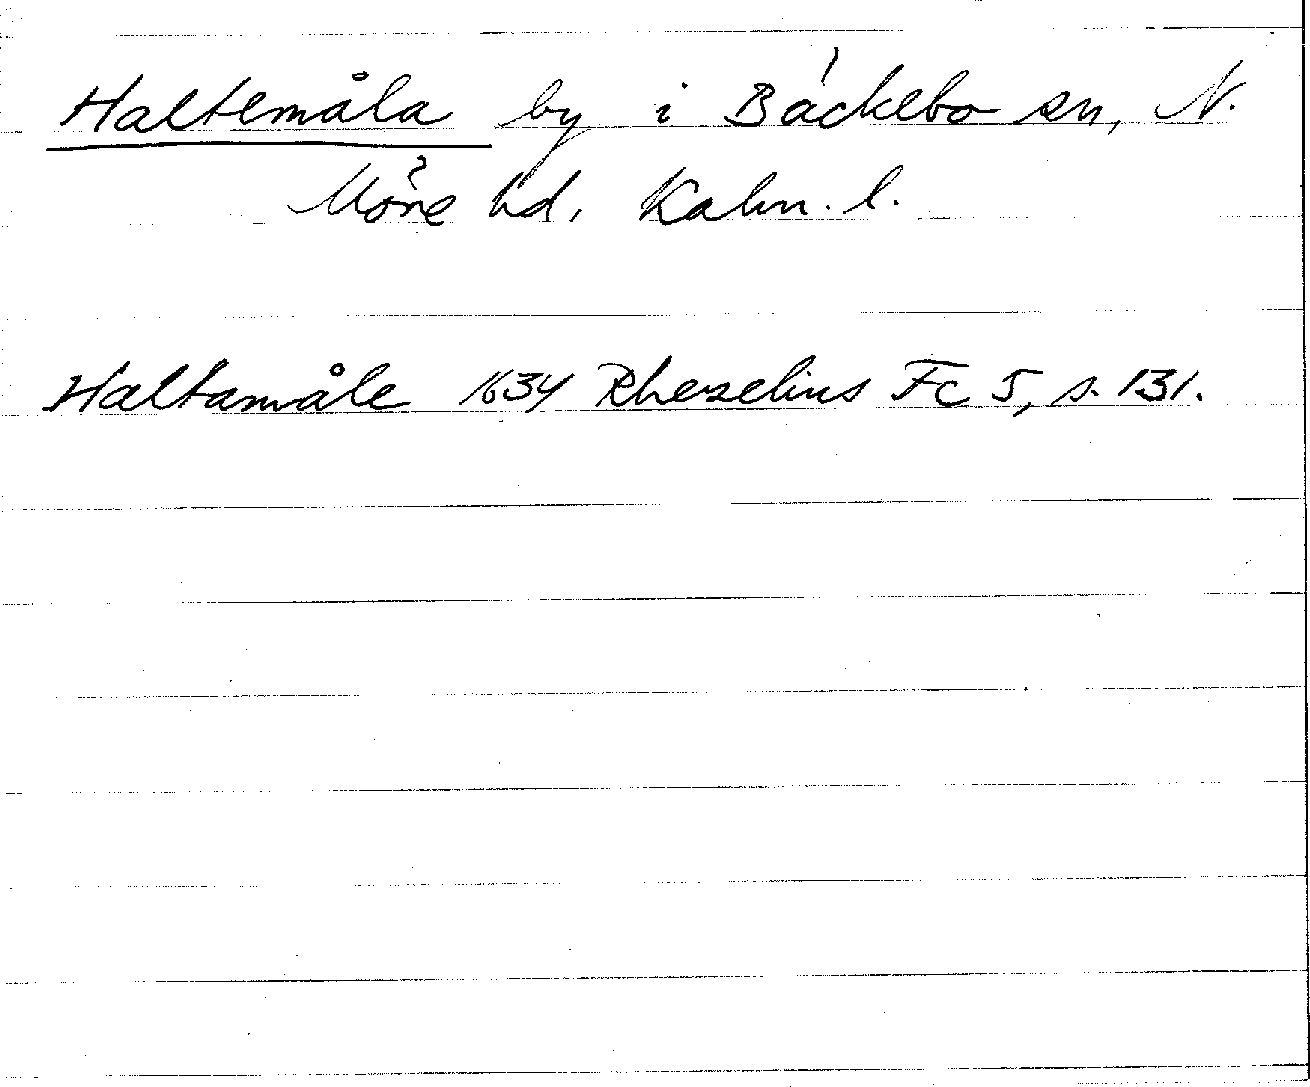 Haltemåla by i Bäckebo sn, N.
Möre hd. Kalm. l.
Haltamåle 1634 Rhezelius Fc 5, s. 131.